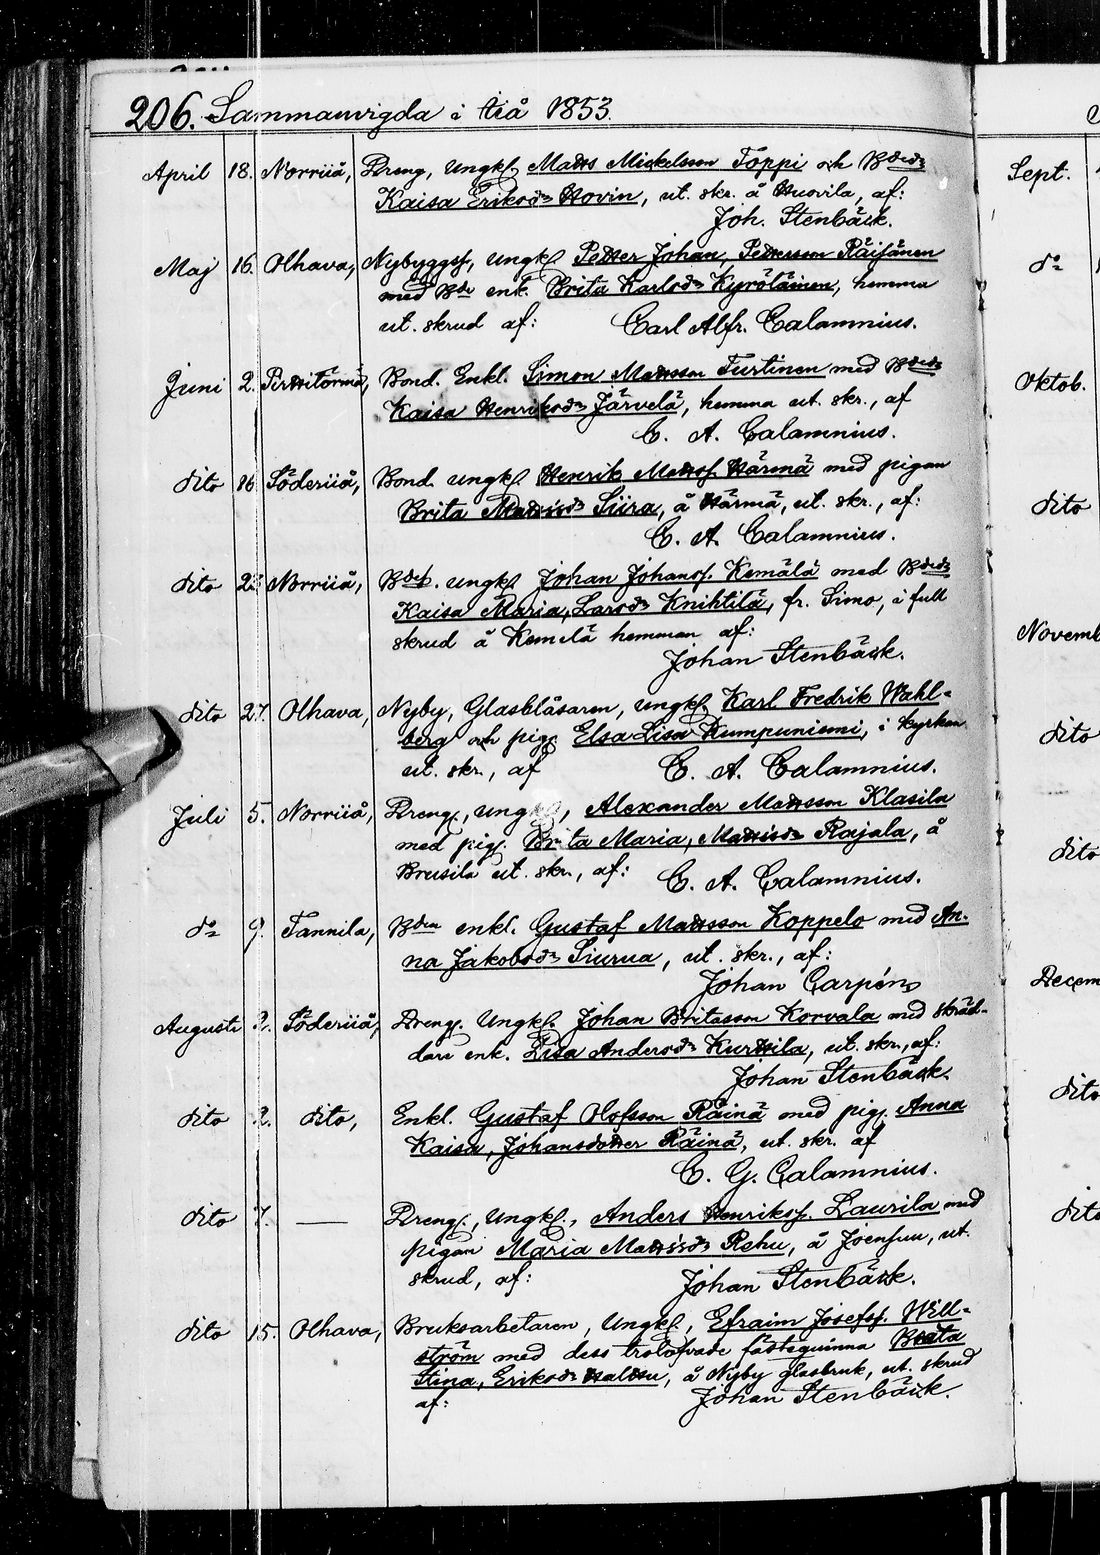 206. Sammanvigda i Iiå 1853.
April 18. Norriiå, Dreng, Ungkl. Matts Mickelsson Toppi och Bdedr
Kaisa Eriksdr Hovin, ut. skr. å Huovila, af:
Joh. Stenbäck.
Maj 16. Olhava, Nybyggess, ungkl Petter Johan, Pettersson Räisänen
med Bde enk. Brita Karlsdr Kyröläinen, hemma
ut. skrud af: Carl Alfr. Calamnius.
Juni 2. Bond. Enkl. Simon Mattsson Turtinen med Bdedr
Kaisa Henriksdr Järvelä, hemma ut. skr., af
C. A. Calamnius.
dito 16 Söderiiå, Bond. ungkl Henrik Mattss. Härmä med pigan
Brita Mattsdr Siira, å Härmä, ut. skr., af:
C. A. Calamnius.
dito 23 Norriiå, Bdes. ungkl Johan Johanss. Kemälä med Bdedr
Kaisa Maria, Larsdr Knihtilä, fr. Simo, i full
skrud å Kemilä hemman af:
Johan Stenbäck.
dito 27. Olhava, Nyby, Glasblåsaren, ungkl. Karl Fredrik Wahl-
berg och pig. Elsa Lisa Kumpuniemi, i kyrkan
ut. skr., af C. A. Calamnius.
Juli 5. Norriiå, Dreng., ungkl, Alexander Mattsson Klasila
med pig. Brita Maria, Mattsdr Rajala, å
Brusila ut. skr., af: C. A. Calamnius.
do 9. Tannila, Bden enkl. Gustaf Mattsson Koppelo med An-
na Jakobsdr Siurua, ut. skr., af:
Johan Carpén
Augusti 2. Söderiiå, Dreng. Ungkl. Johan Britasson Korvala med skräd-
dare enk. Lisa Andersdr Kurttila, ut. skr., af:
Johan Stenbäck.
dito 2. dito, Enkl. Gustaf Olofsson Räinä med pig. Anna
Kaisa, Johansdotter Räinä, ut. skr. af
C. G. Calamnius.
dito 7. — Dreng., Ungkl., Anders Henrikss. Laurila med
pigan Maria Mattsdr Rehu, å Joensuu, ut.
skrud, af: Johan Stenbäck.
dito 15. Olhava, Bruksarbetaren, Ungkl., Efraim Josefss. Will-
ström med dess trolofvade fästequinna
Stina, Eriksdr Haltsu, å Nyby glasbruk, ut. skrud
af: Johan Stenbäck.
Sept.
do
Oktob.
dito
Novemb
dito
dito
Decem
dito
dito